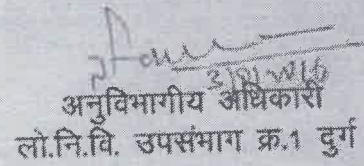 अनुविभागीय अधिकारी
लो.नि.वि. उपसंभाग क्र.1 दुर्ग